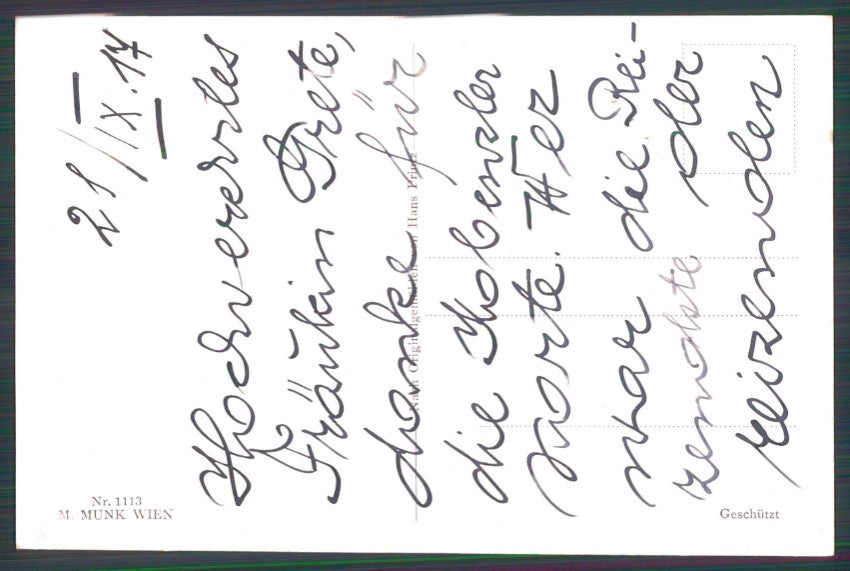 21/IX.17
Hochverertes
Fräulein Grete,
danke für
die Kobenzler
Karte. Wer
war die Rei-
zendste der
reizenden
Nach Originalgemälden von Hans Printz
Nr. 1113
M. MUNK WIEN
Geschützt